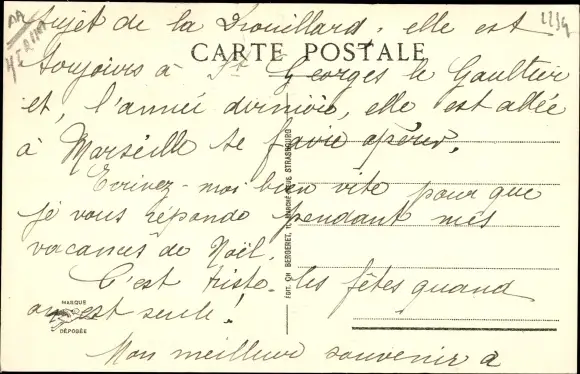 sujet de la Drouillard, elle est
CARTE POSTALE
toujours à St Georges le Gaultier
et, l'année dernière, elle est allée
à Marseille se faire opérer.
Ecrivez-moi bien vite pour que
je vous réponde pendant mes
vacances de Noël.
C'est triste les fêtes quand
on est seule!
Mon meilleur souvenir à
MARQUE
DÉPOSÉE
EDIT. CH. BERGERET, MARCHÉ-NEUF STRASBOURG